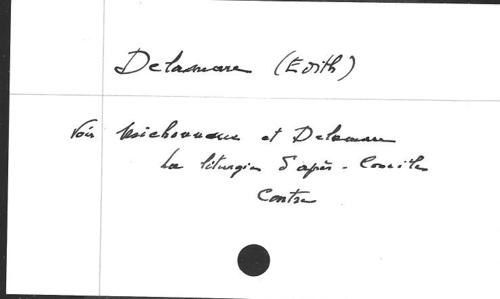 Delamare (Edith)
Voir Michonneau et Delamare
La liturgie d'après-Concile
Contre